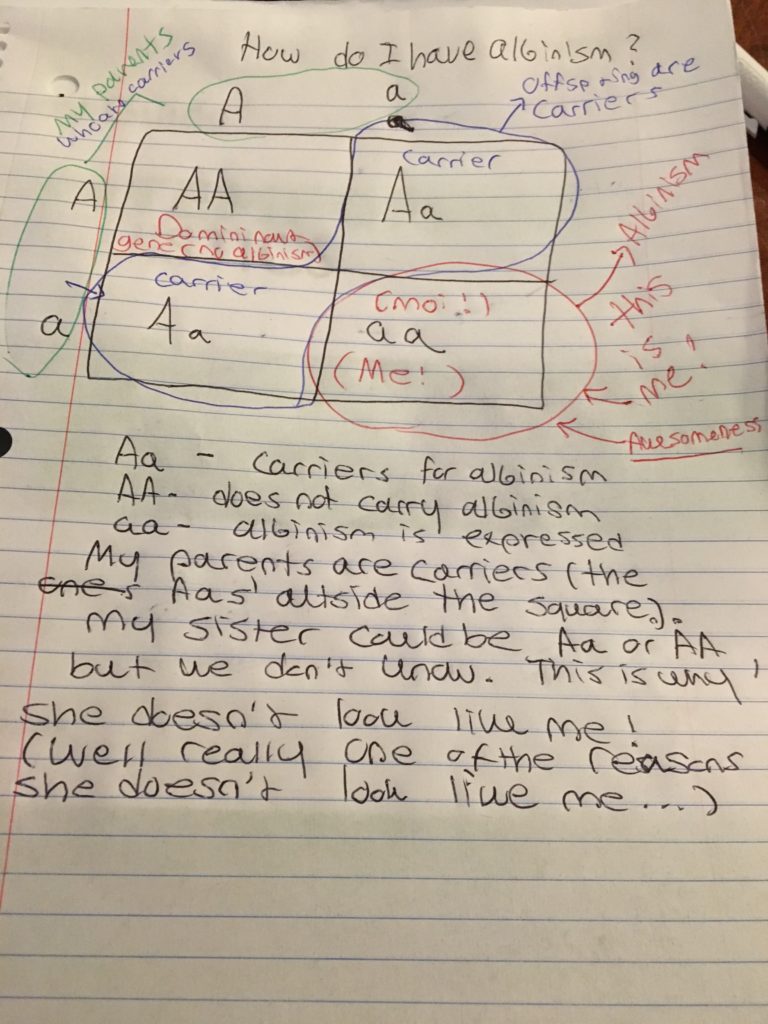 How do I have albinism?
My parents
who are carriers
Offspring are
Carriers
A
a
A
AA
Dominant
gene (no albinism)
carrier
Aa
a
carrier
Aa
(moi!)
aa
(Me!)
Albinism
this
is
me!
Awesomeness
Aa - carriers for albinism
AA- does not carry albinism
aa- albinism is expressed
My parents are carriers (the
Aas' outside the square).
My sister could be Aa or AA
but we don't know. This is why
she doesn't look like me!
(Well really one of the reasons
she doesn't look like me...)